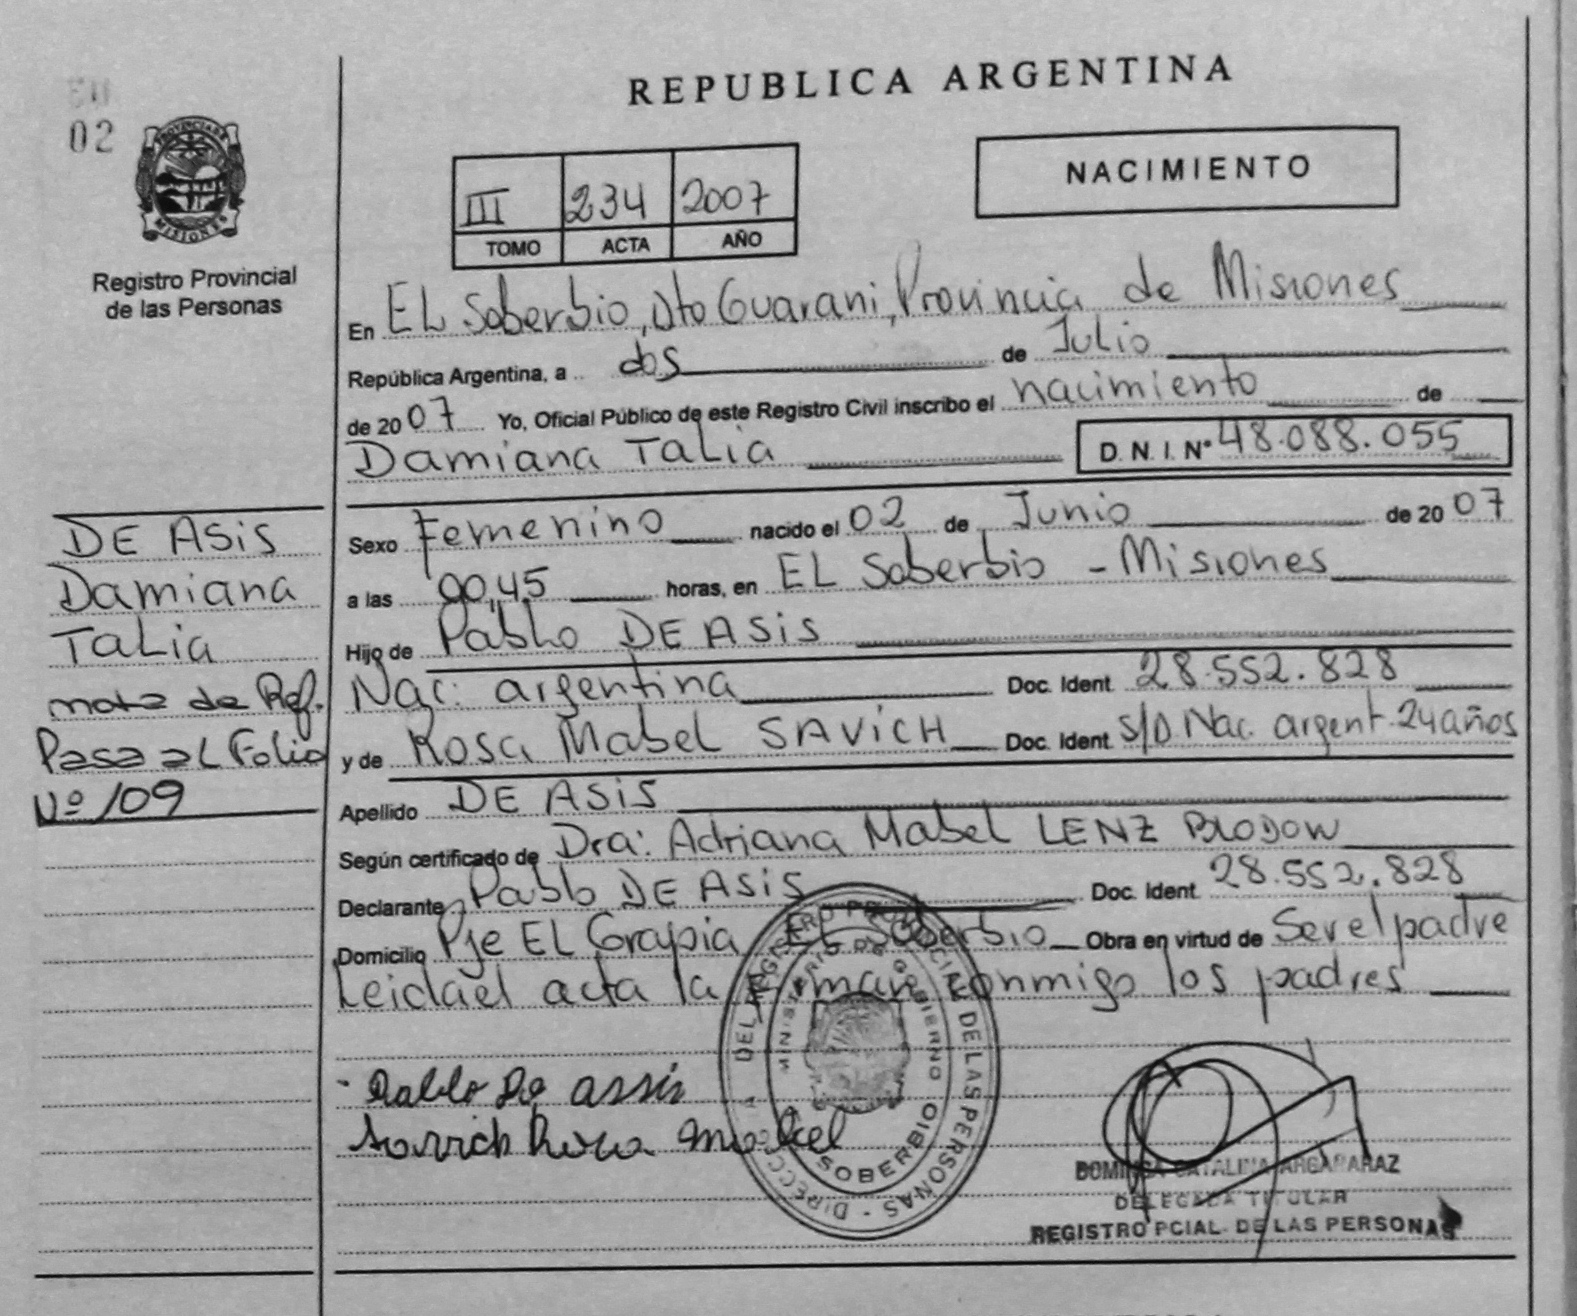 REPUBLICA ARGENTINA
02
PROVINCIA DE MISIONES
Registro Provincial
de las Personas
III 234 2007
TOMO ACTA AÑO
NACIMIENTO
En EL Soberbio, Dto Guarani, Provincia de Misiones
República Argentina, a dos de Julio
de 2007 Yo, Oficial Público de este Registro Civil inscribo el nacimiento de
Damiana TaLia D.N.I. Nº 48.088.055
DE ASiS
Damiana
TaLia
nota de Ref.
Pasa al Folio
Nº 109
Sexo Femenino nacido el 02 de Junio de 2007
a las 00,45 horas, en EL Soberbio - Misiones
Hijo de Pablo DE ASiS
Nac: argentina Doc. Ident 28.552.828
y de Rosa Mabel SAViCH Doc. Ident. S/D Nac. argent. 24 años
Apellido DE ASiS
Según certificado de Dra: Adriana Mabel LENZ BLODOW
Declarante Pablo DE ASiS Doc. Ident. 28.552.828
Domicilio Pje EL Grapia EL Soberbio Obra en virtud de Ser el padre
Leida el acta la firman conmigo los padres
Pablo De assis
Savich Rosa Mabel
DIRECCION DEL REGISTRO PROVINCIAL DE LAS PERSONAS
MINISTERIO DE GOBIERNO
SOBERBIO
DOMINGA CATALINA ARGAÑARAZ
DELEGADA TITULAR
REGISTRO PCIAL. DE LAS PERSONAS